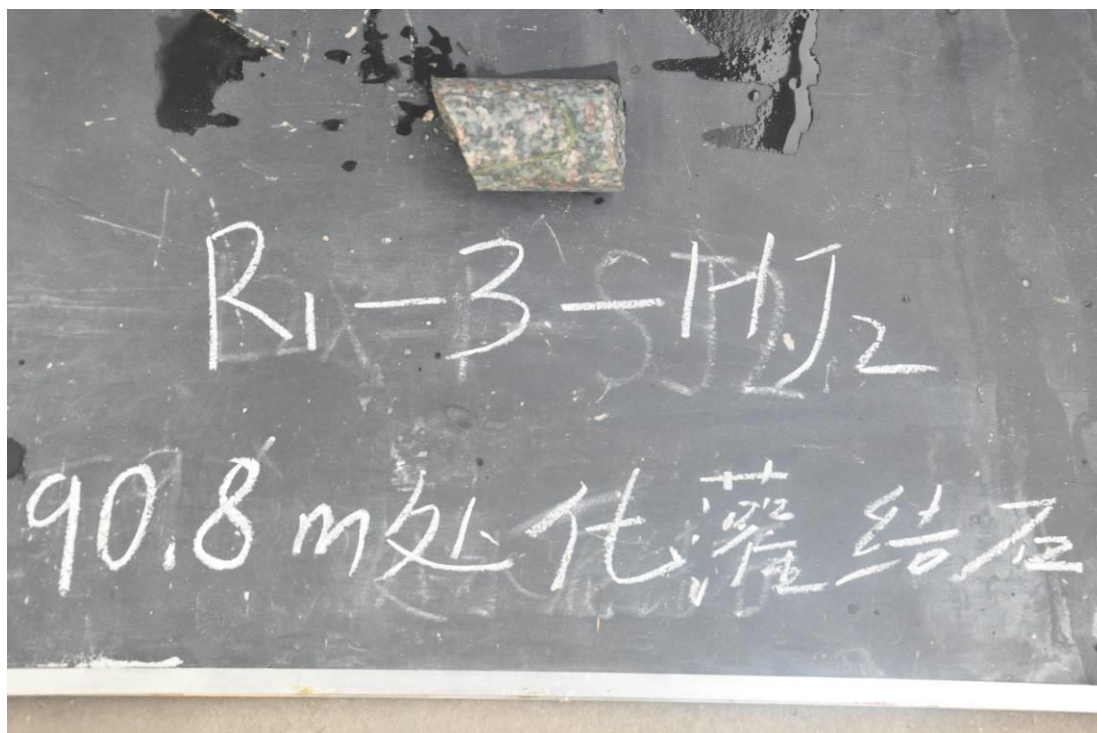 R₁-3-HJ₂
90.8m处化灌结石